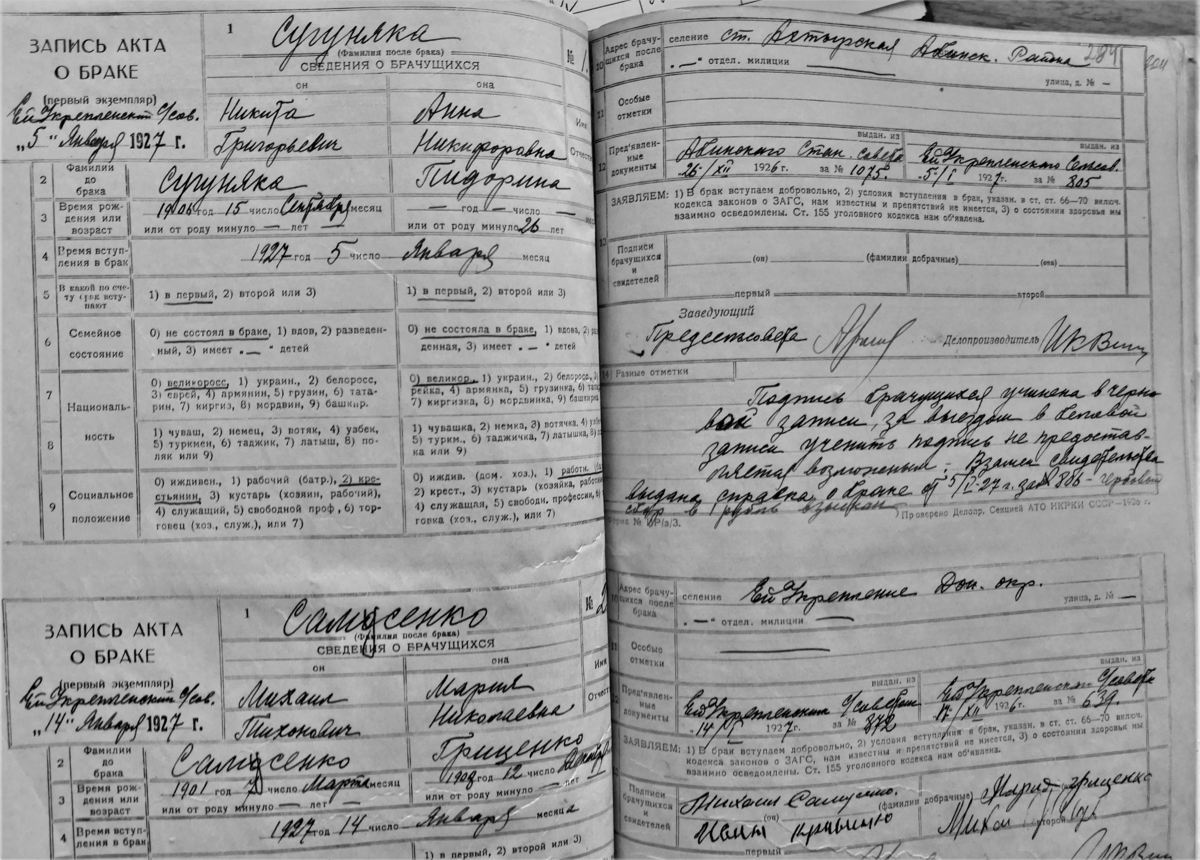 ЗАПИСЬ АКТА
О БРАКЕ
(первый экземпляр)
Ей Укрепленский с/сов.
„5„ Января 1927 г.
1
Сугуняка
(Фамилия после брака)
№ 1.
СВЕДЕНИЯ О БРАЧУЩИХСЯ
он
она
Никита
Анна
Имя
Григорьевич
Никифоровна
Отчество
2
Фамилии до брака
Сугуняка
Пидорина
3
Время рождения или возраст
год 15 число Сентября месяц
— год — число —
или от роду минуло — лет
или от роду минуло 26 лет
4
Время вступления в брак
1927 год 5 число Января месяц
5
В какой по счету брак вступают
1) в первый, 2) второй или 3)
1) в первый, 2) второй или 3)
6
Семейное состояние
0) не состоял в браке, 1) вдов, 2) разведен-
ный, 3) имеет „—„ детей
0) не состояла в браке, 1) вдова, 2) раз
денная, 3) имеет „—„ детей
7
8
Националь-
ность
0) великоросс, 1) украин., 2) белоросс,
3) еврей, 4) армянин, 5) грузин, 6) тата-
рин, 7) киргиз, 8) мордвин, 9) башкир.
0) великор., 1) украин., 2) белоросс, 3)
рейка, 4) армянка, 5) грузинка, 6) тата
7) киргизка, 8) мордвинка, 9) башкирка
1) чуваш, 2) немец, 3) вотяк, 4) узбек,
5) туркмен, 6) таджик, 7) латыш, 8) по-
ляк или 9)
1) чувашка, 2) немка, 3) вотячка, 4) узб
5) туркм., 6) таджичка, 7) латышка, 8) по
ка или 9)
9
Социальное
положение
0) иждивен., 1) рабочий (батр.), 2) кре-
стьянин, 3) кустарь (хозяин, рабочий),
4) служащий, 5) свободной проф., 6) тор-
говец (хоз., служ.), или 7)
0) иждив. (дом. хоз.), 1) работн. (ба
2) крест., 3) кустарь (хозяйка, работн
4) служащая, 5) свободн. профессии, 6)
говка (хоз., служ.), или 7)
10
Адрес брачу-
щихся после
брака
селение ст. Ахтырская Абинск. Района
284
„—„ отдел. милиции —
улица, д. № —
11
Особые
отметки
12
Пред'явлен-
ные
документы
выдан. из
выдан. из
Абинского Стан. совета
Ей Укрепленского Сельсов.
25/XII 1926 г. за № 1075.
5/I 1927 г. за № 805
ЗАЯВЛЯЕМ: 1) В брак вступаем добровольно, 2) условия вступления в брак, указан. в ст. ст. 66—70 включ.
кодекса законов о ЗАГС, нам известны и препятствий не имеется, 3) о состоянии здоровья мы
взаимно осведомлены. Ст. 155 уголовного кодекса нам об'явлена.
13
Подписи
брачущихся
и
свидетелей
(он)
(фамилии добрачные)
(она)
первый
второй
Заведующий
Предсельсовета
Делопроизводитель
14) Разные отметки
Подпись брачущихся учинена в черно
вой записи, за выездом в беловой
записи учинить подпись не предостав-
ляется возможным. Взамен свидетельства
выдана справка о браке от 5/I-27 г. за № 806 — гербовый
сбор в 1 рубль взыскан
Проверено Делопр. Секцией АТО НКРКИ СССР—1926 г.
ЗАПИСЬ АКТА
О БРАКЕ
(первый экземпляр)
Ей Укрепленский с/сов.
„14„ Января 1927 г.
1
Самусенко
(Фамилия после брака)
№ 2
СВЕДЕНИЯ О БРАЧУЩИХСЯ
он
она
Михаил
Мария
Имя
Тихонович
Николаевна
Отчест
2
Фамилии до брака
Самусенко
Гриценко
3
Время рождения или возраст
1901 год число Марта месяц
год 12 число
или от роду минуло — лет
или от роду минуло — лет
4
Время вступления в брак
1927 год 14 число Января месяц
1) в первый, 2) второй или 3)
1) в первый, 2) второй или 3)
Адрес брачу-
щихся после
брака
селение Ей Укрепление Дон. окр.
„—„ отдел. милиции —
улица, д. № —
Особые
отметки
Пред'явлен-
ные
документы
выдан. из
выдан. из
Ей Укрепленским с/советом
Ей Укрепленский с/совета
14/I 1927 г. за № 872
17/XII 1926 г. за № 639.
ЗАЯВЛЯЕМ: 1) В брак вступаем добровольно, 2) условия вступления в брак, указан. в ст. ст. 66—70 включ.
кодекса законов о ЗАГС, нам известны и препятствий не имеется, 3) о состоянии здоровья мы
взаимно осведомлены. Ст. 155 уголовного кодекса нам об'явлена.
Подписи
брачущихся
и
свидетелей
Михаил
(он)
(фамилии добрачные)
Мария Гриценко
первый